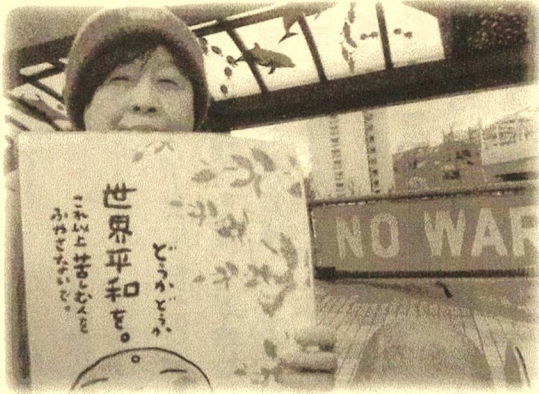 どうかどうか
世界平和を。
これ以上苦しむ人を
ふやさないで。
NO WAR